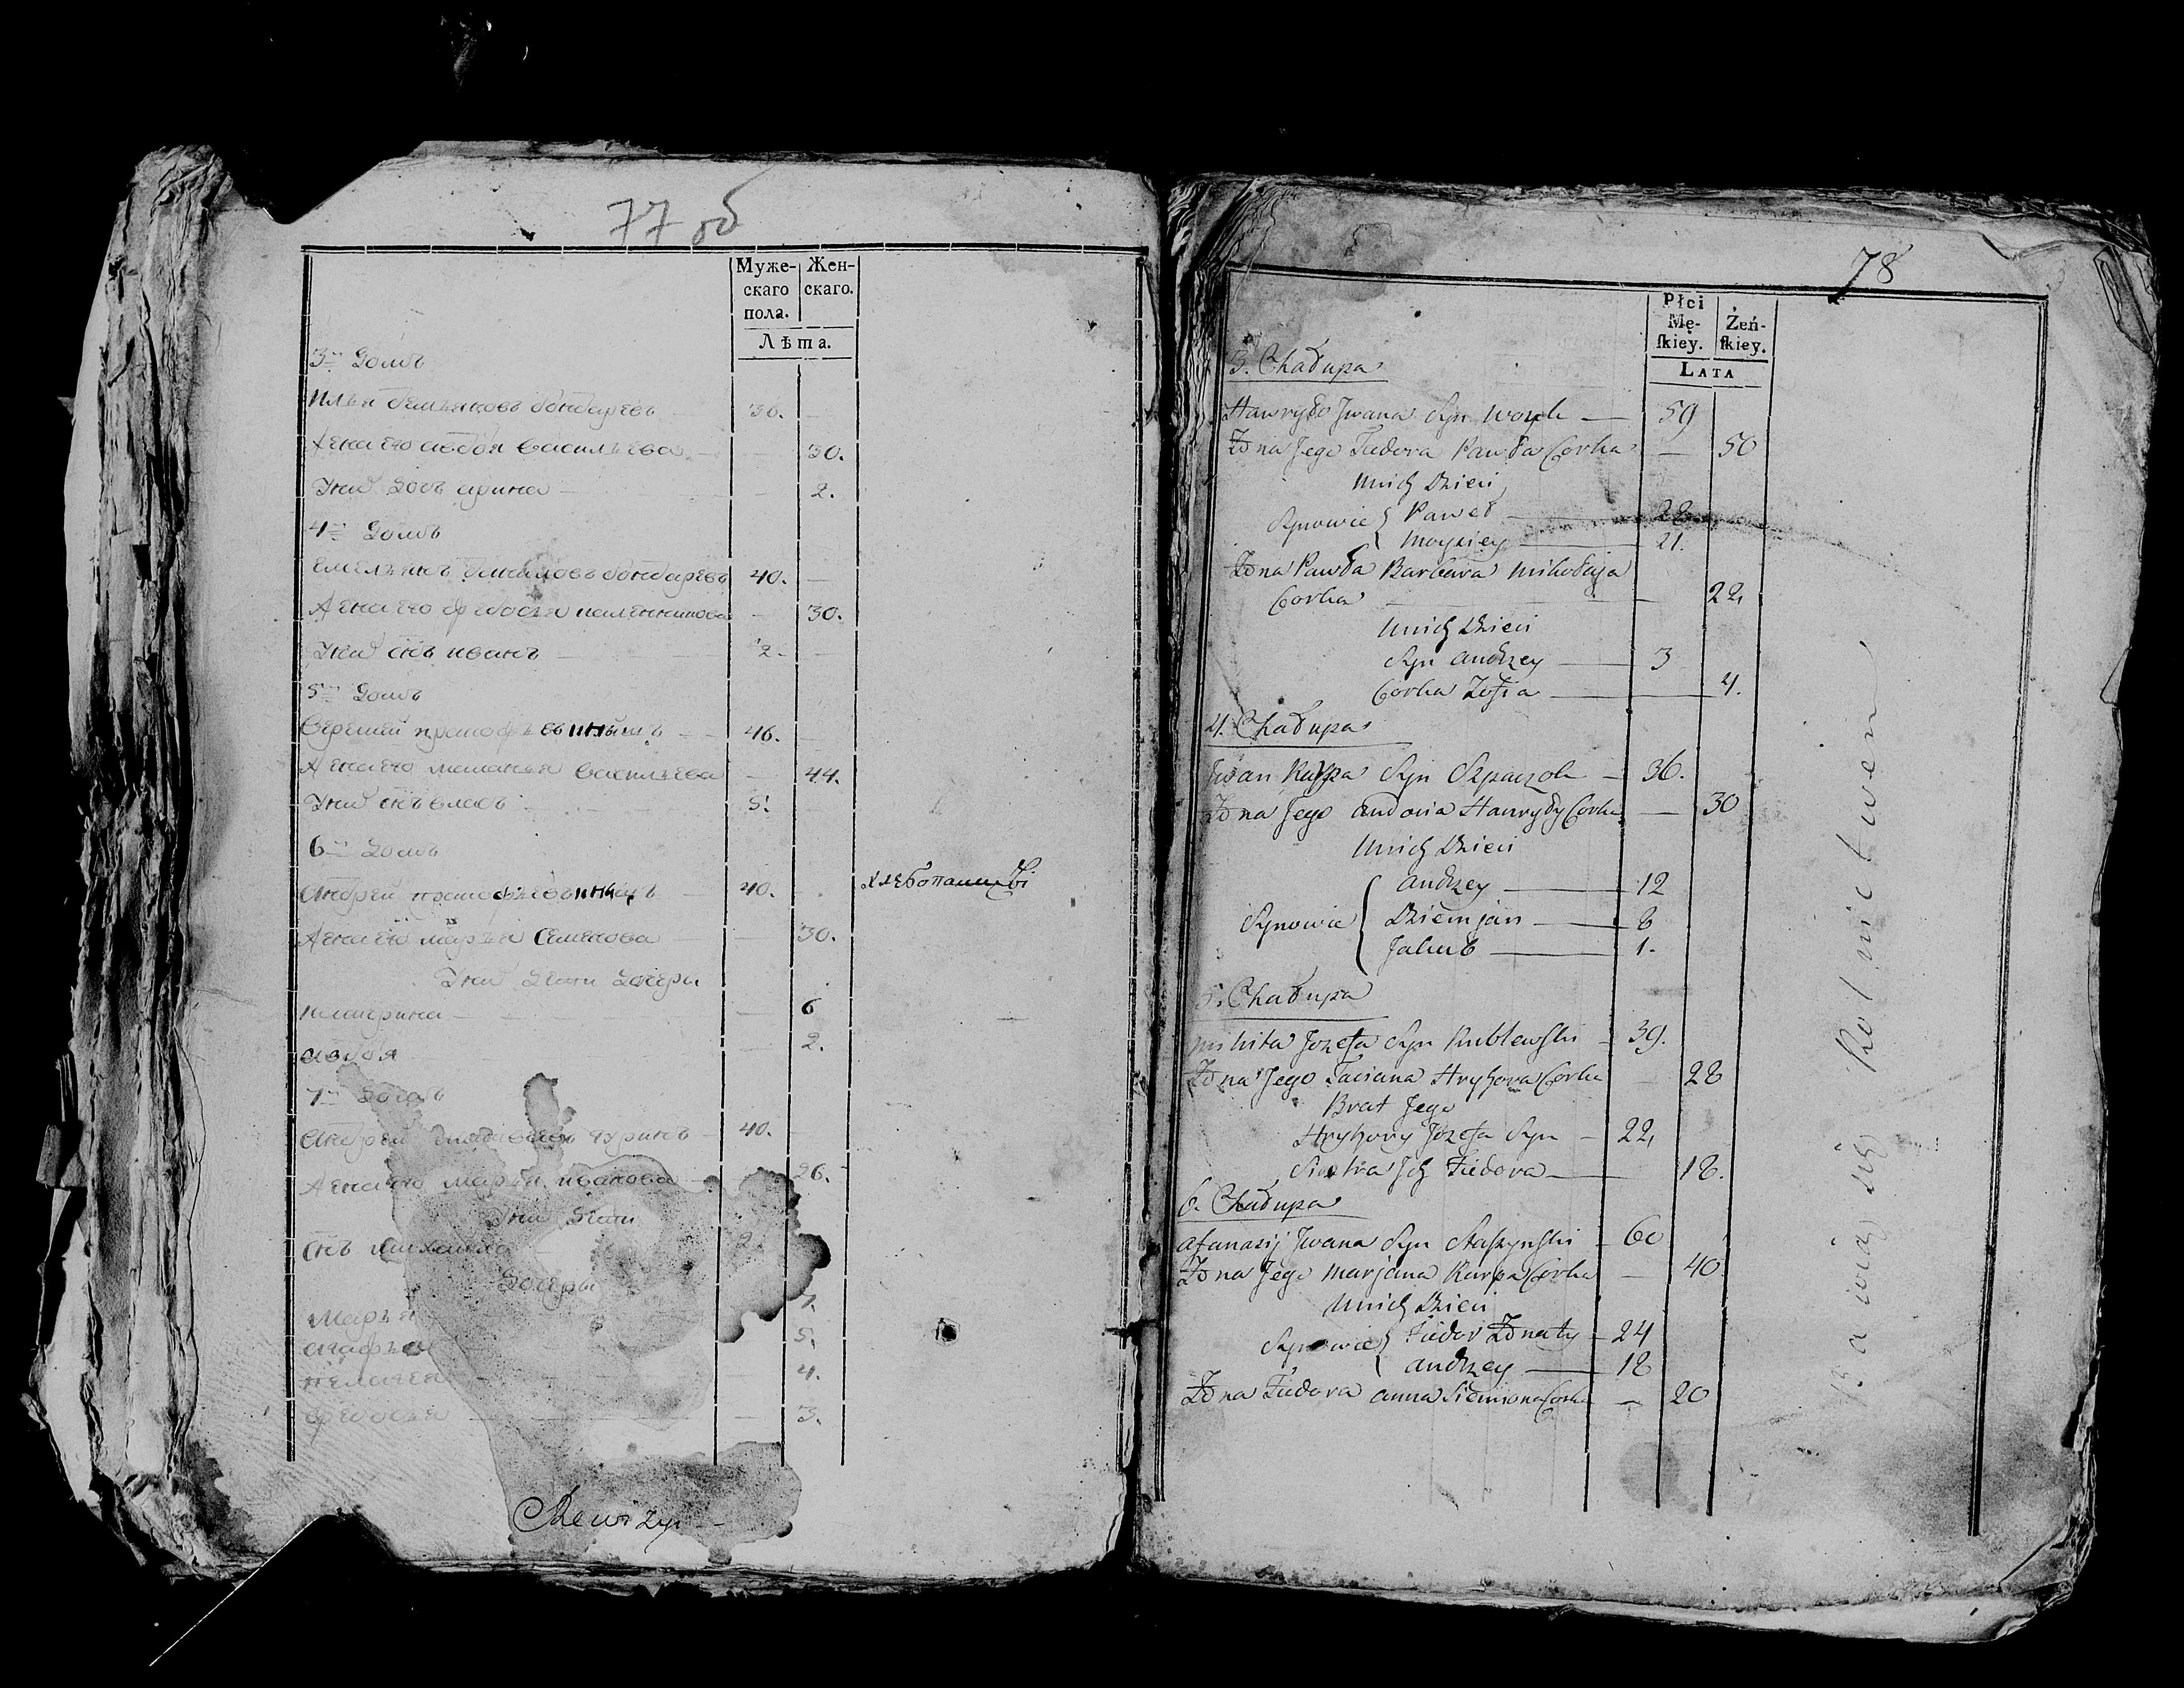 77 об
Муже-
скаго
пола.
Жен-
скаго.
Лѣта.
3й Домъ
Илья Демьяновъ бондаревъ 30.
Жена его авдотя васильева 30.
Уних дочь арина 2.
4й Домъ
Емельянъ Даниловъ бондаревъ 40.
Жена его федосья 30.
Уних снъ иванъ 2.
5й Домъ
Сергей 46.
Жена его маланья васильева 44.
Уних снъ 5.
6й Домъ
Андрей 40. хлебопашцы
Жена его марья Семенова 30.
Уних Дети Дочери
6
2.
7й Домъ
Андрей 40.
Жена его марья иванова 26.
Уних Дети
Снъ
Дочери
Марья 7.
агафья 5.
пелагея 4.
федосья 3.
Rewizyi
78
Płci
Mę-
ſkiey.
Żeń-
ſkiey.
LATA
3. Chałupa
Hawryło Jwana Syn 59
Żona Jego Fiedora Pawła Corka 50
Unich Dzieci
Synowie Paweł 28
Moysiey 21.
Żona Pawła Barbara Mikołaja
Corka 22,
Unich Dzieci
Syn Andrzey 3
Corka Zofia 4.
4. Chałupa
Jwan Karpa Syn Szpaczok 36.
Żona Jego Hawryły Corka 30
Unich Dzieci
Andrzey 12
Synowie Dziemjan 8
Jakub 1.
5. Chałupa
Mikita Jozefa Syn Kublewski 39.
Żona Jego Taciana Hryhora Corka 28
Brat Jego
Hryhory Jozefa Syn 22,
Siostra Jch Fiedora 18.
6. Chałupa
Afanasij Jwana Syn Staszynski 60
Żona Jego Marjana Karpa Corka 40.
Unich Dzieci
Synowie Fiedor Żonaty 24
Andrzey 18
Żona Fiedora Anna Siemiona Corka 20
Bawią się Rolnictwem